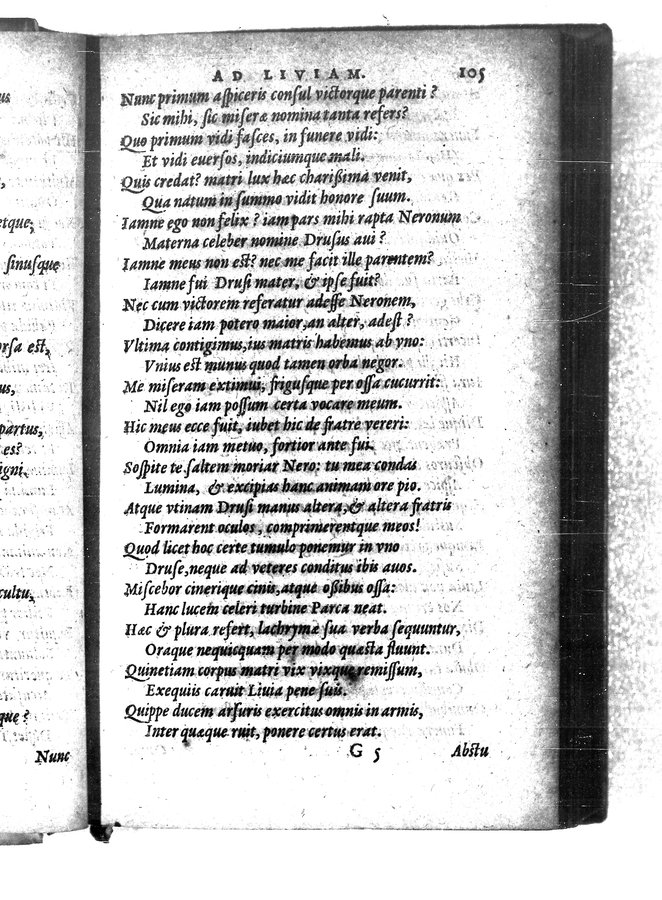 us
etque;
sinusque
orsa est,
us,
partus,
es?
igni.
cultu,
que?
Nunc
AD LIVIAM. 105
Nunc primum aſpiceris conſul victorque parenti?
Sic mihi, ſic miſeræ nomina tanta refers?
Quo primum vidi faſces, in funere vidi:
Et vidi euerſos, indiciumque mali.
Quis credat? matri lux hæc charißima venit,
Qua natum in ſummo vidit honore ſuum.
Iamne ego non felix? iam pars mihi rapta Neronum
Materna celeber nomine Druſus aui?
Iamne meus non eſt? nec me facit ille parentem?
Iamne fui Druſi mater, & ipſe fuit?
Nec cum victorem referatur adeſſe Neronem,
Dicere iam potero maior, an alter, adeſt?
Vltima contigimus, ius matris habemus ab vno:
Vnius eſt munus quod tamen orba negor.
Me miſeram extimui, frigusque per oſſa cucurrit:
Nil ego iam poſſum certa vocare meum.
Hic meus ecce fuit, iubet hic de fratre vereri:
Omnia iam metuo, fortior ante fui.
Soſpite te ſaltem moriar Nero: tu mea condas
Lumina, & excipias hanc animam ore pio.
Atque vtinam Druſi manus altera, & altera fratris
Formarent oculos, comprimerentque meos!
Quod licet hoc certe tumulo ponemur in vno
Druſe, neque ad veteres conditus ibis auos.
Miſcebor cinerique cinis, atque oßibus oſſa:
Hanc lucem celeri turbine Parca neat.
Hæc & plura refert, lachrymæ ſua verba ſequuntur,
Oraque nequicquam per modo quæſta fluunt.
Quinetiam corpus matri vix vixque remiſſum,
Exequiis caruit Liuia pene ſuis.
Quippe ducem arſuris exercitus omnis in armis,
Inter quæque ruit, ponere certus erat.
G 5 Abſtu